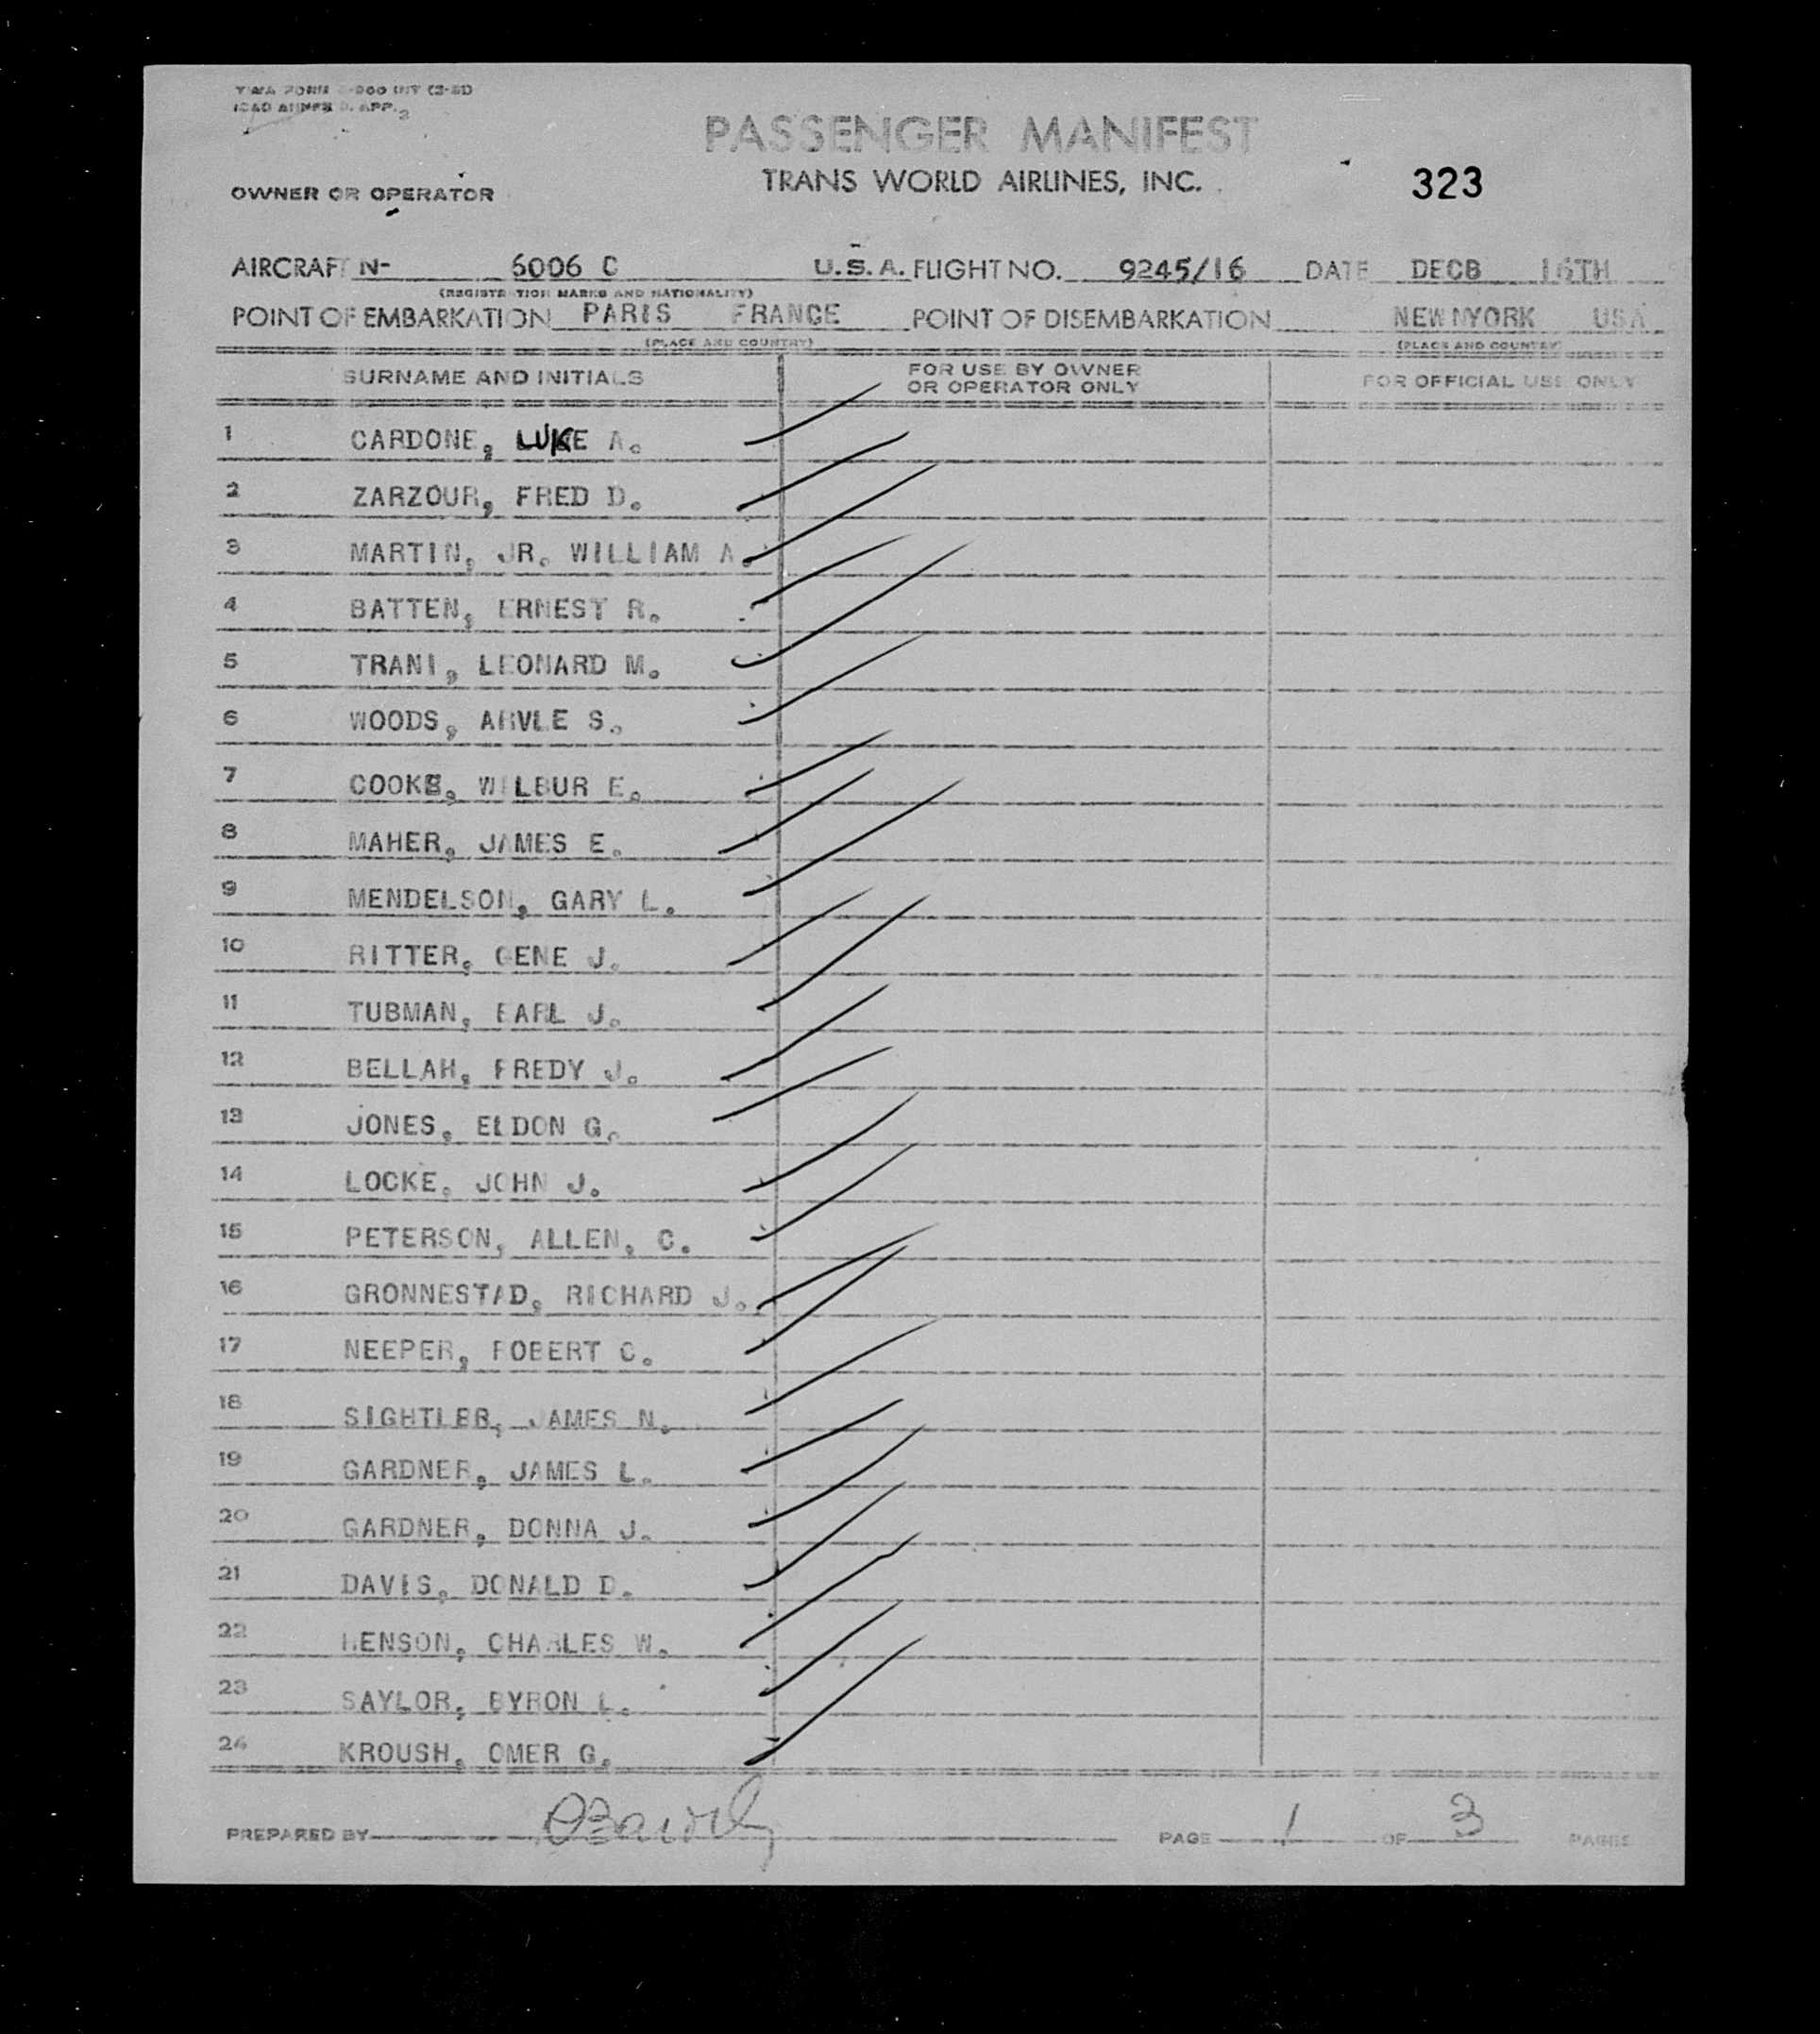 ICAO ANNEX 9. APP. 2
PASSENGER MANIFEST
TRANS WORLD AIRLINES, INC.
323
OWNER OR OPERATOR
AIRCRAFT N- 6006 C U.S.A. FLIGHT NO. 9245/16 DATE DECB 16TH
(REGISTRATION MARKS AND NATIONALITY)
POINT OF EMBARKATION PARIS FRANCE POINT OF DISEMBARKATION NEWNYORK USA
(PLACE AND COUNTRY) (PLACE AND COUNTRY)
SURNAME AND INITIALS FOR USE BY OWNER OR OPERATOR ONLY FOR OFFICIAL USE ONLY
1 CARDONE, LUKE A.
2 ZARZOUR, FRED D.
3 MARTIN, JR. WILLIAM A.
4 BATTEN, ERNEST R.
5 TRANI, LEONARD M.
6 WOODS, ARVLE S.
7 COOKE, WILBUR E.
8 MAHER, JAMES E.
9 MENDELSON, GARY L.
10 RITTER, GENE J.
11 TUBMAN, EARL J.
12 BELLAH, FREDY J.
13 JONES, ELDON G.
14 LOCKE, JOHN J.
15 PETERSON, ALLEN, C.
16 GRONNESTAD, RICHARD J.
17 NEEPER, ROBERT C.
18 SIGHTLER, JAMES N.
19 GARDNER, JAMES L.
20 GARDNER, DONNA J.
21 DAVIS, DONALD D.
22 HENSON, CHARLES W.
23 SAYLOR, BYRON L.
24 KROUSH, OMER G.
PREPARED BY PAGE 1 OF 3 PAGES